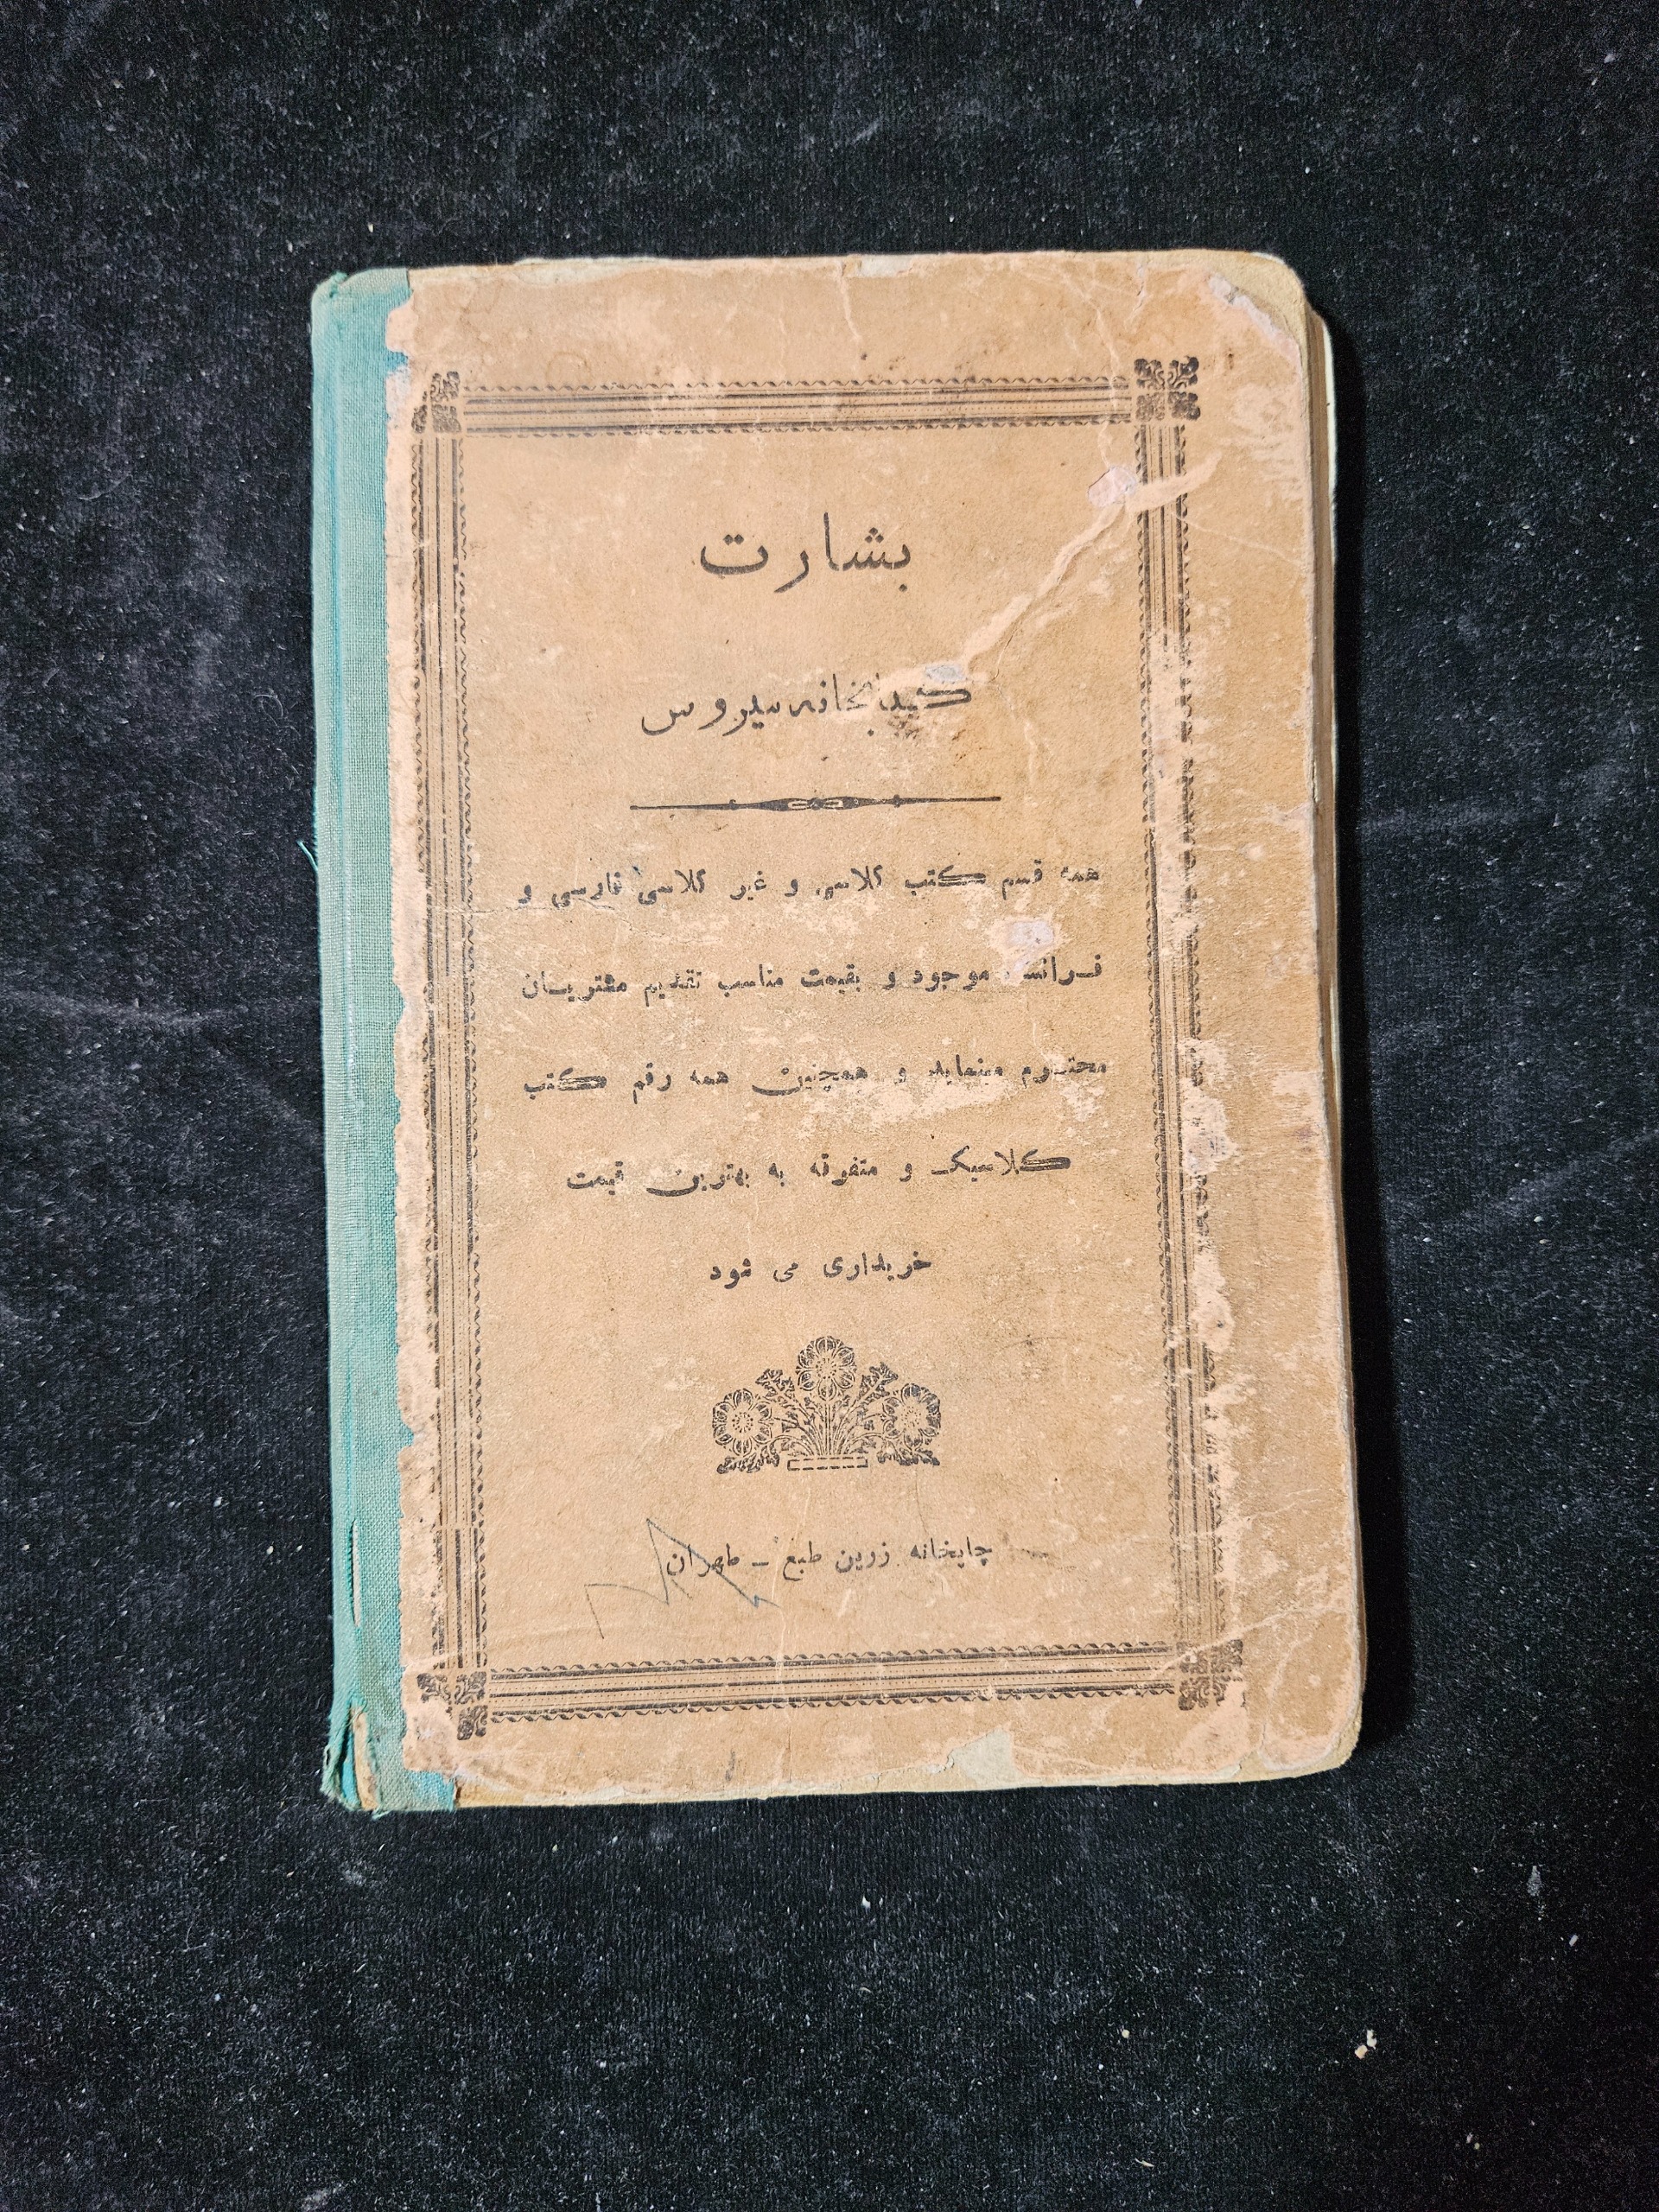 بشارت
کتابخانه سیروس
همه قسم کتب کلاسی و غیر کلاسی فارسی و
فرانسه موجود و بقیمت مناسب تقدیم مشتریان
محترم مینماید و همچنین همه رقم کتب
کلاسیک و متفرقه به بهترین قیمت
خریداری می شود
چاپخانه زرین طبع - طهران